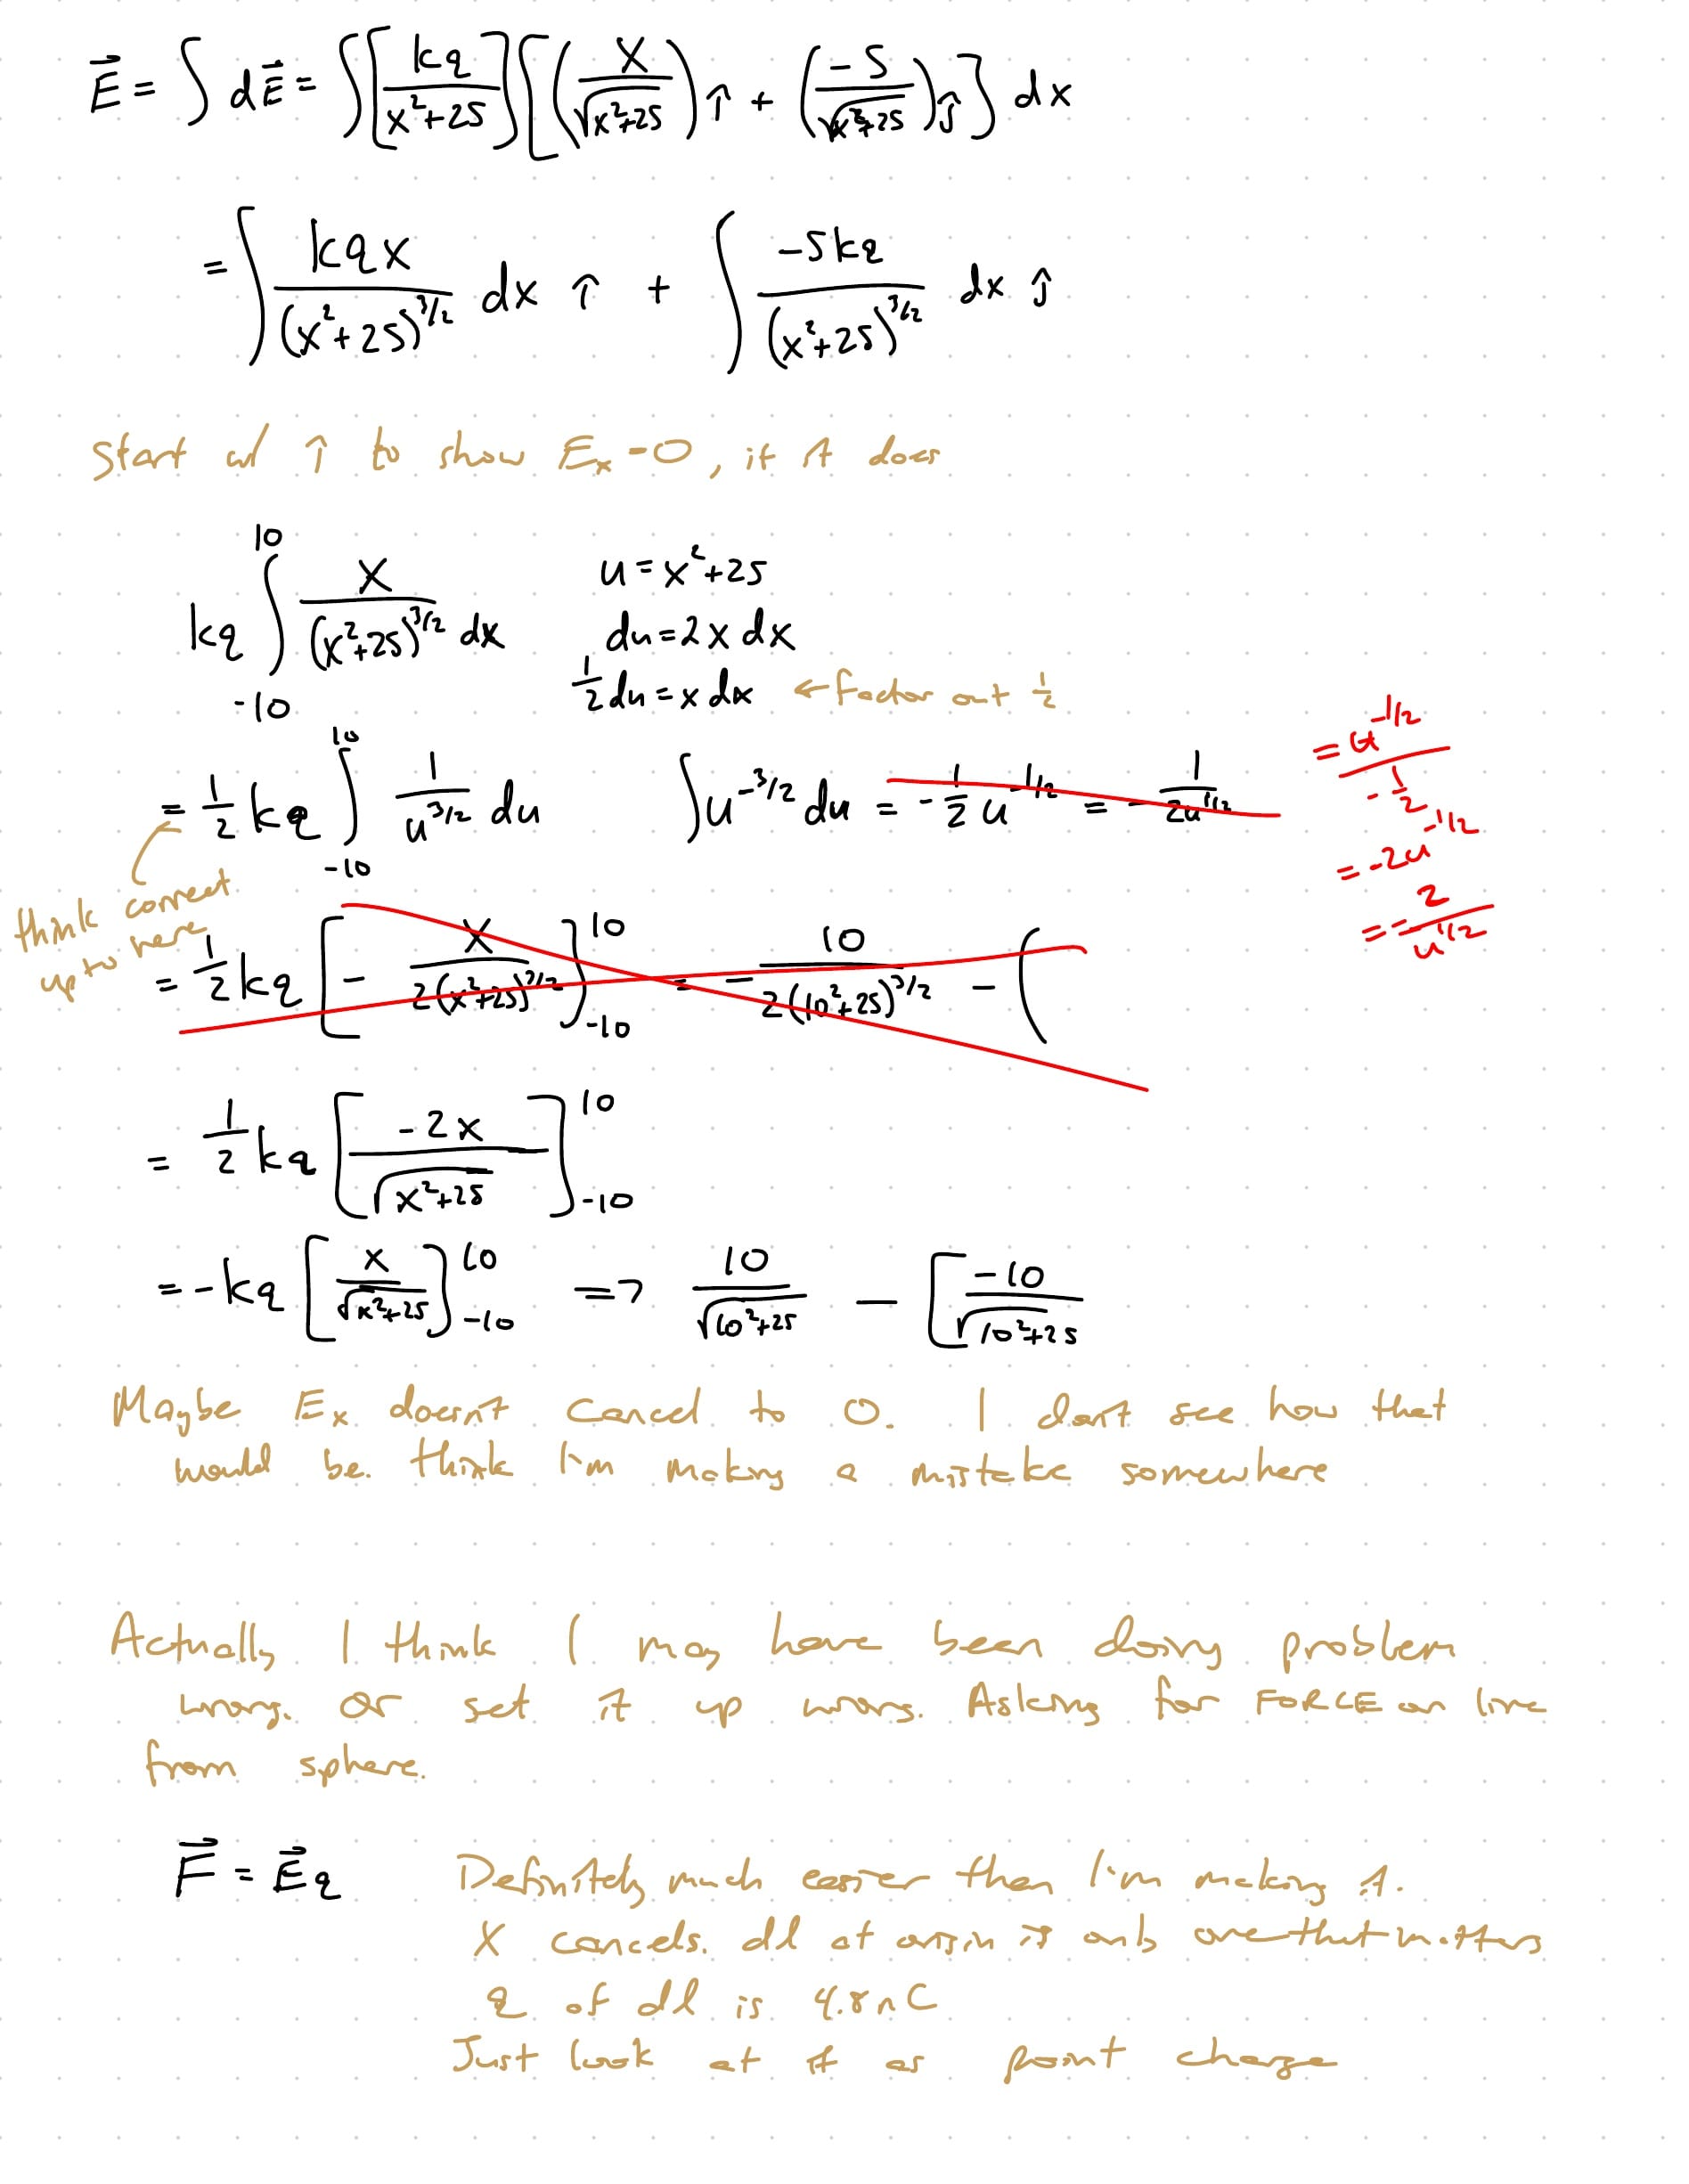 $\vec{E} = \int d\vec{E} = \int \left[\frac{kq}{x^2+25}\right]\left[\left(\frac{x}{\sqrt{x^2+25}}\right)\hat{\imath} + \left(\frac{-5}{\sqrt{x^2+25}}\right)\hat{\jmath}\right] dx$
$= \int \frac{kqx}{(x^2+25)^{3/2}} dx\ \hat{\imath} + \int \frac{-5kq}{(x^2+25)^{3/2}} dx\ \hat{\jmath}$
Start w/ $\hat{\imath}$ to show $E_x = 0$, if it does
$kq \int_{-10}^{10} \frac{x}{(x^2+25)^{3/2}} dx$
$u = x^2+25$
$du = 2x\,dx$
$\frac{1}{2}du = x\,dx$ ← factor out $\frac{1}{2}$
$= \frac{1}{2}kq \int_{-10}^{10} \frac{1}{u^{3/2}} du$
$\int u^{-3/2} du = -\frac{1}{2}u^{-1/2} = -\frac{1}{2u^{1/2}}$
$= \frac{u^{-1/2}}{-\frac{1}{2}}$
$= -2u^{-1/2}$
$= -\frac{2}{u^{1/2}}$
think correct
up to here
$= \frac{1}{2}kq \left[-\frac{x}{2(x^2+25)^{3/2}}\right]_{-10}^{10} = -\frac{10}{2(10^2+25)^{3/2}} - ($
$= \frac{1}{2}kq \left[\frac{-2x}{\sqrt{x^2+25}}\right]_{-10}^{10}$
$= -kq \left[\frac{x}{\sqrt{x^2+25}}\right]_{-10}^{10} \Rightarrow \frac{10}{\sqrt{10^2+25}} - \left[\frac{-10}{\sqrt{10^2+25}}\right.$
Maybe $E_x$ doesn't cancel to 0. I don't see how that
would be. think I'm making a mistake somewhere
Actually I think I may have been doing problem
wrong. Or set it up wrong. Asking for FORCE on line
from sphere.
$\vec{F} = \vec{E}q$
Definitely much easier than I'm making it.
X cancels. dl at origin is only one that matters
q of dl is 4.8nC
Just look at it as point charge